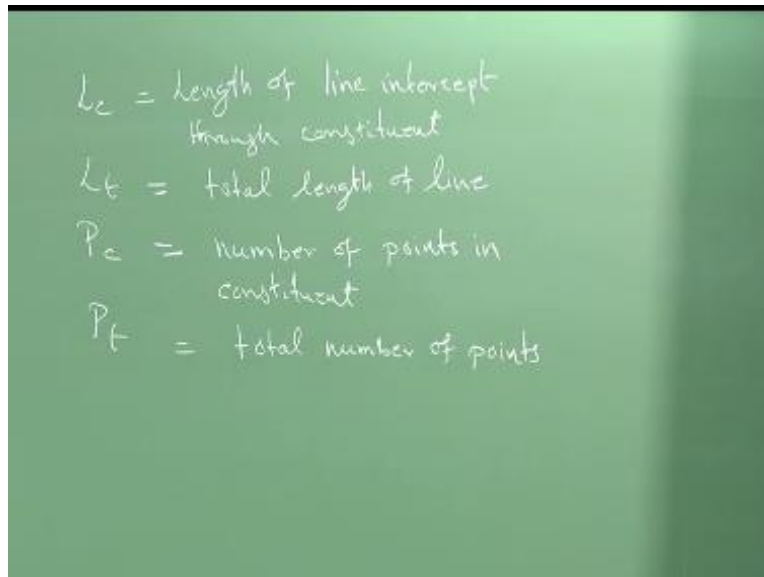 Lc = Length of line intercept
through constituent
Lt = total length of line
Pc = number of points in
constituent
Pt = total number of points